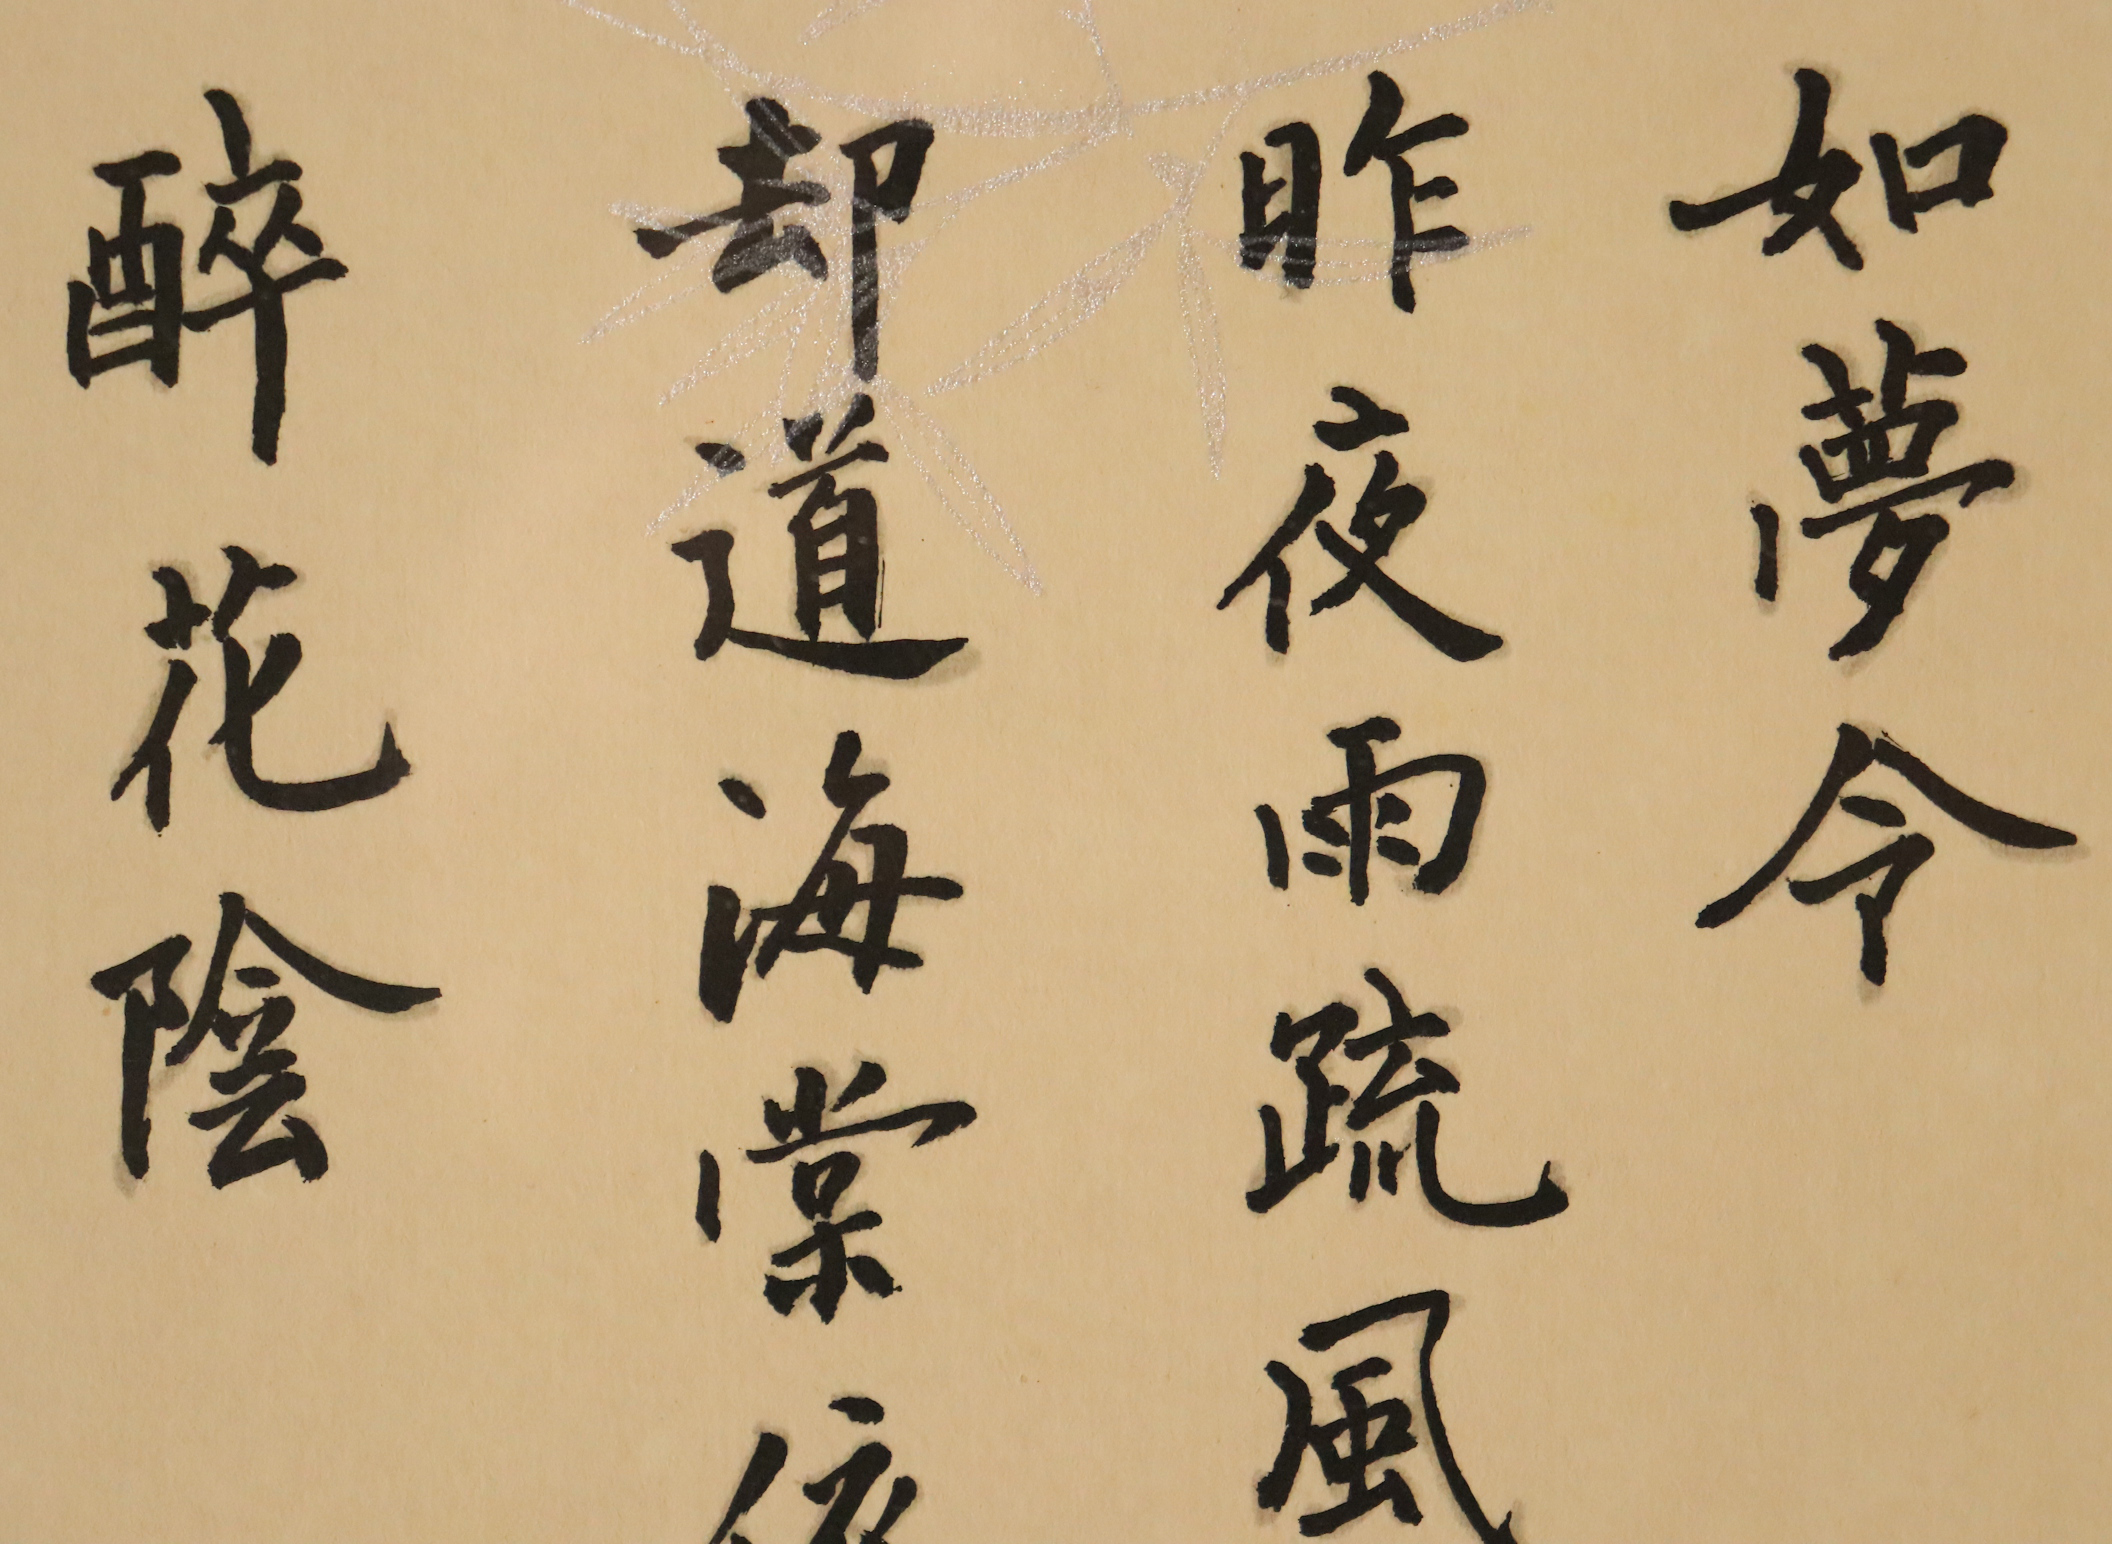 如夢令
昨夜雨疏風
却道海棠依
醉花陰